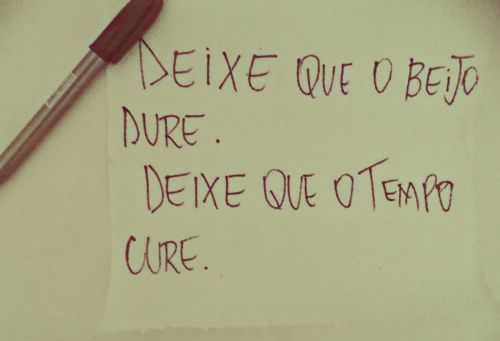 DEIXE QUE O BEIJO
DURE.
DEIXE QUE O TEMPO
CURE.